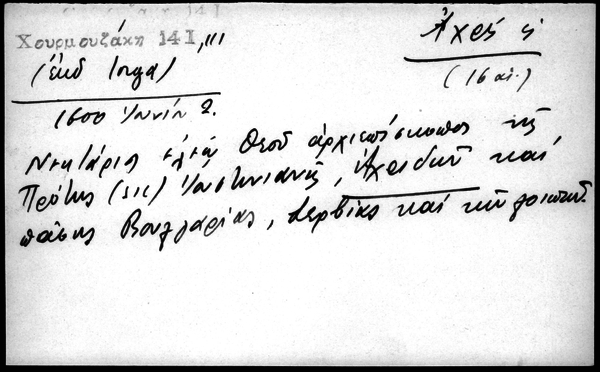 Χουρμουζάκη 14 I, III
(ἐκδ Iorga)
Ἀχρί
(16 αἰ.)
1600 Ἰουνίου 2.
Νεκτάριος ἐλέῳ Θεοῦ ἀρχιεπίσκοπος τῆς
Πρώτης (sic) Ἰουστινιανῆς, Ἀχριδῶν καὶ
πάσης Βουλγαρίας, Σερβίας καὶ τῶν λοιπῶν.